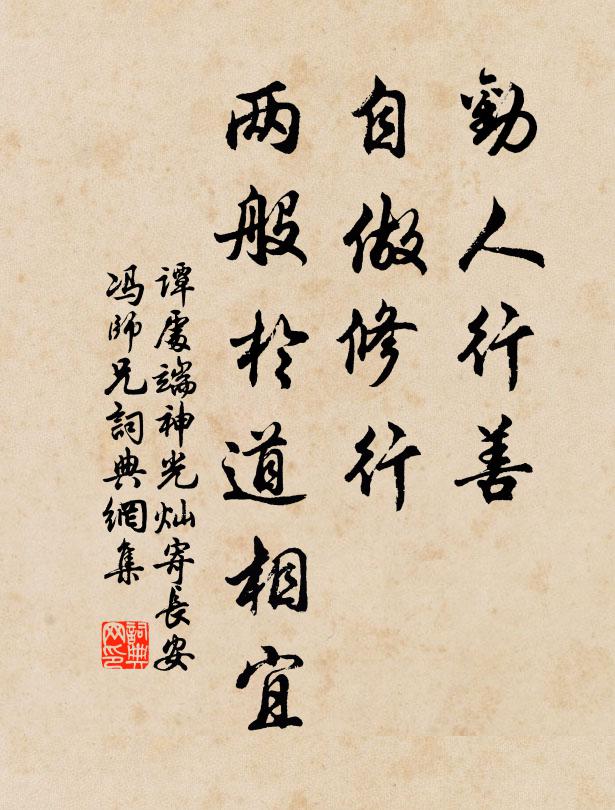 勸人行善
自做修行
两般於道相宜
谭處端神光灿寄長安
冯師兄詞典網集
詞典
网印